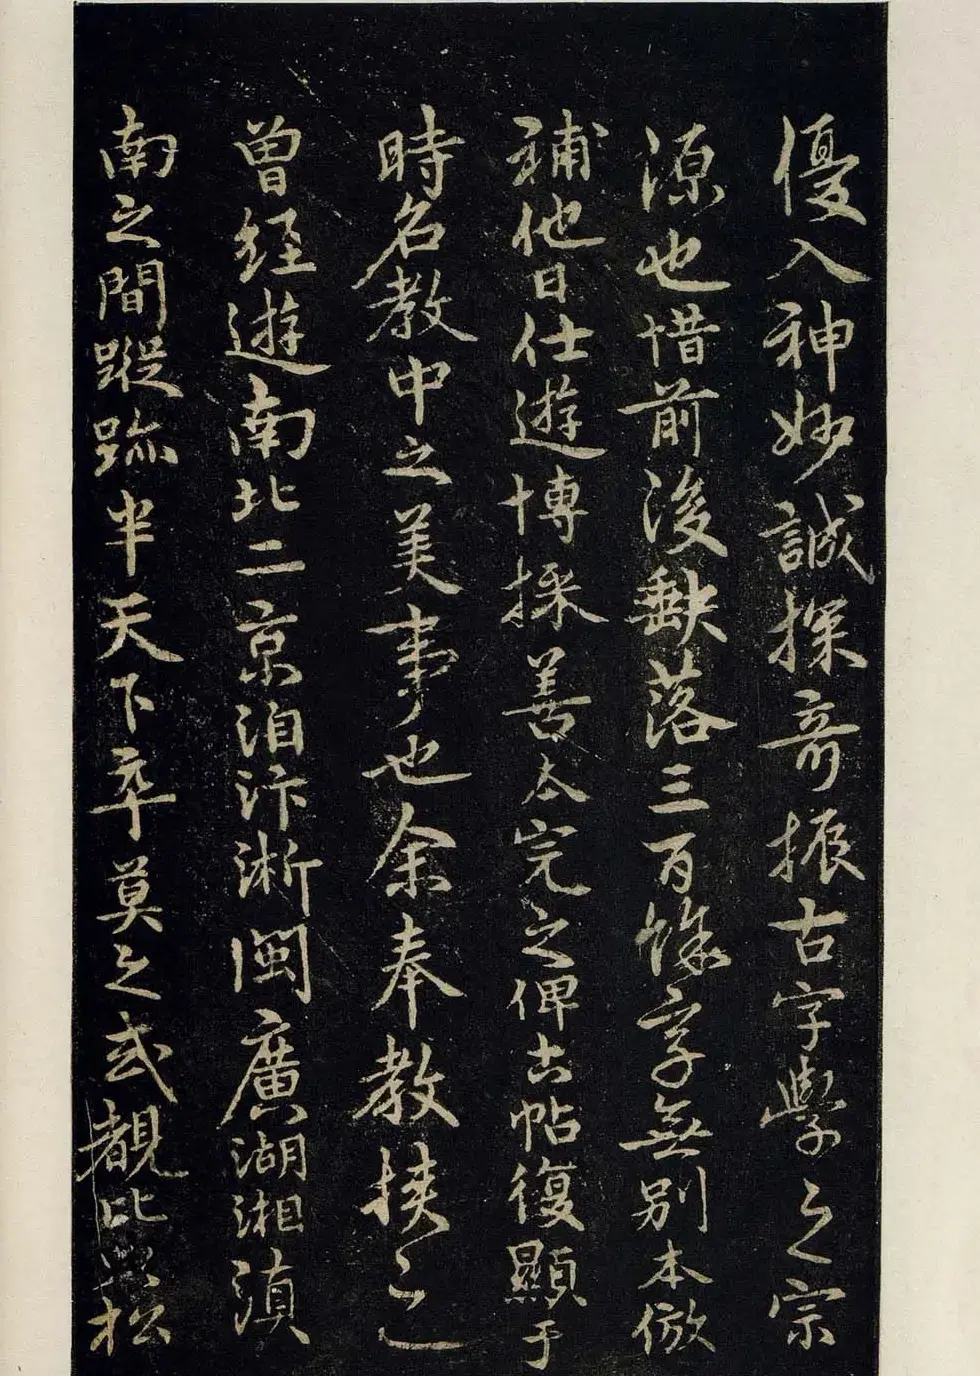 優入神妙誠探奇振古字學之宗
源也惜前後缺落三百餘字無別本倣
補他日仕遊博採善本完之俾古帖復顯于
時名教中之美事也余奉教挟之
曾經遊南北二京洎汴淅閩廣湖湘滇
南之間蹤跡半天下卒莫之或觀比松